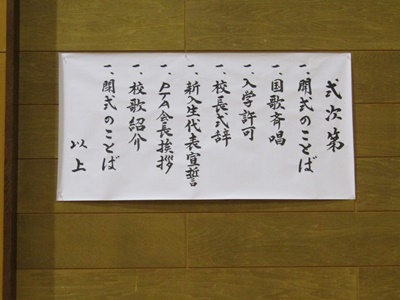 式次第
一、開式のことば
一、国歌斉唱
一、入学許可
一、校長式辞
一、新入生代表宣誓
一、PTA会長挨拶
一、校歌紹介
一、閉式のことば
以上